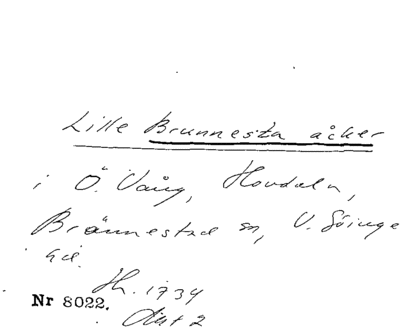 Lille Brunnesta åcker
i Ö. Vång, Hovdala,
Brännestad sn, V. Göinge
hd.
Th. 1734
Akt 2
Nr 8022.